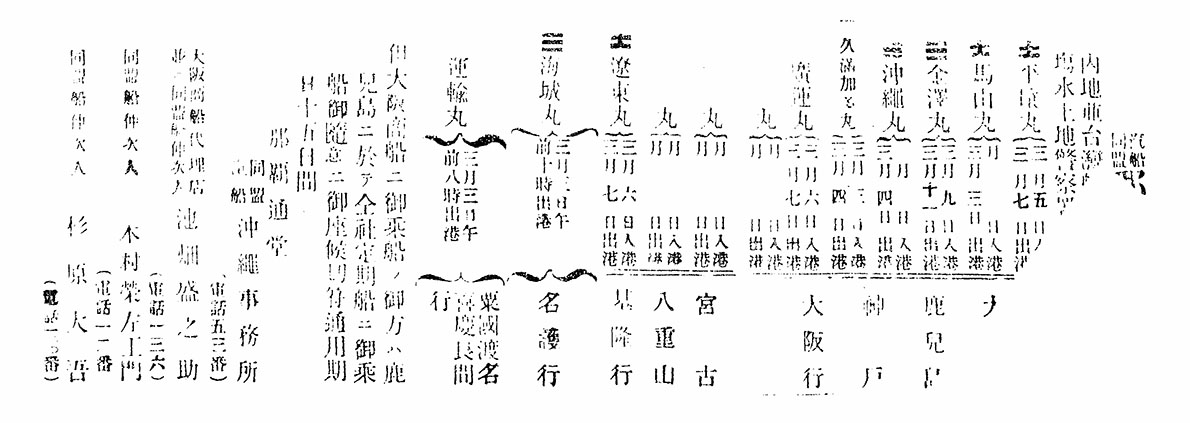 汽船
同盟
内地並台灣
平壤丸
三月五日入
三月七日出港
馬山丸
月 日入港
三月三日出港
金澤丸
三月九日入港
三月十一日出港
鹿兒島
沖繩丸
月 日入港
三月四日出港
神戸
久滿加多丸
三月三日入港
三月四日出港
廣運丸
三月六日入港
三月七日出港
大阪行
丸
月 日入港
月 日出港
丸
月 日入港
月 日出港
宮古
丸
月 日入港
月 日出港
八重山
遼東丸
三月六日入港
三月七日出港
基隆行
海城丸
三月三日午
前十時出港
名護行
運輸丸
三月三日午
前八時出港
粟國渡名
喜慶良間
行
但大阪商船ニ御乘船ノ御方ハ鹿
兒島ニ於テ全社定期船ニ御乘
船御隨意ニ御座候切符通用期
日十五日間
那覇通堂
同盟
汽船
沖繩事務所
(電話五三番)
大阪商船代理店
並ニ同盟船仲次人
池畑盛之助
(電話一三六)
同盟船仲次人
木村榮左工門
(電話一一番
同盟船仲次人
杉原大吾